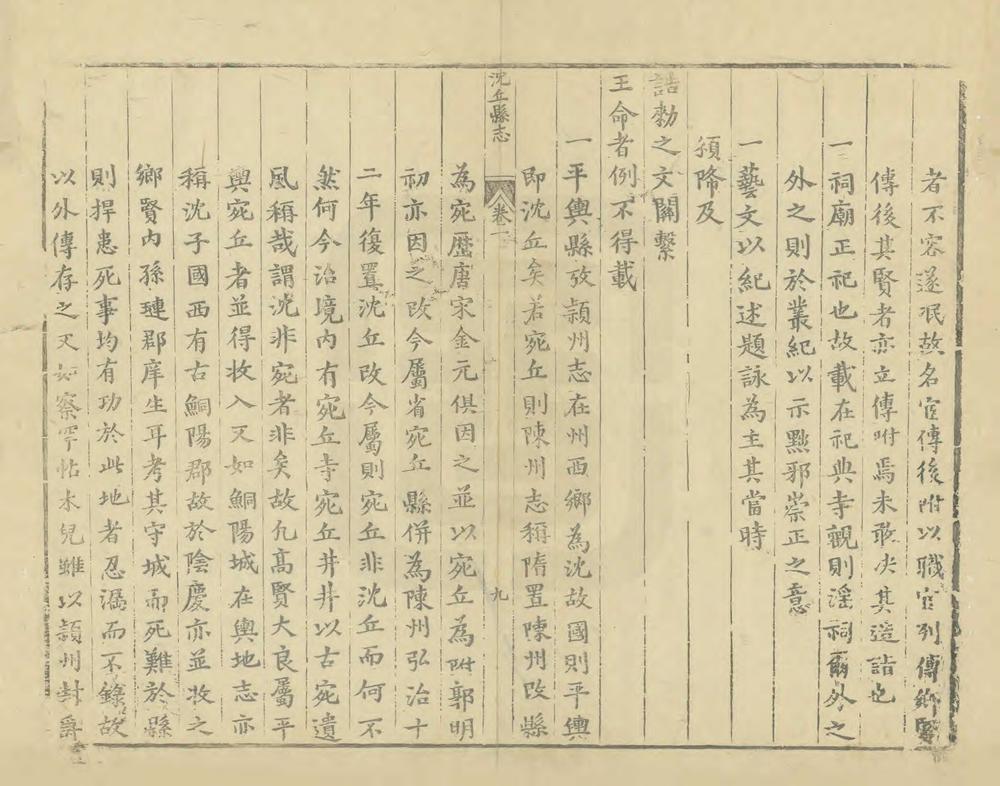 者不容遂泯故名宦傳後附以職官列傳鄉賢
傳後其賢者亦立傳附焉未敢决其造詣也
一祠廟正祀也故載在祀典寺觀則淫祠爾外之
外之則於叢紀以示黜邪崇正之意
一藝文以紀述題詠為主其當時
頒降及
誥勅之文關繫
王命者例不得載
一平輿縣攷潁州志在州西鄉為沈故國則平輿
即沈丘矣若宛丘則陳州志稱隋置陳州改縣
沈丘縣志
卷一
九
為宛歷唐宋金元俱因之並以宛丘為附郭明
初亦因之改今屬省宛丘縣併為陳州弘治十
二年復置沈丘改今屬則宛丘非沈丘而何不
然何今治境内有宛丘寺宛丘井井以古宛遺
風稱哉謂沈非宛者非矣故凢高賢大良屬平
輿宛丘者並得收入又如鮦陽城在輿地志亦
稱沈子國西有古鮦陽郡故於陰慶亦並收之
鄉賢内孫璉郡庠生耳考其守城而死難於縣
則捍患死事均有功於此地者忍漏而不錄故
以外傳存之又如察罕帖木兒雖以潁州封爵